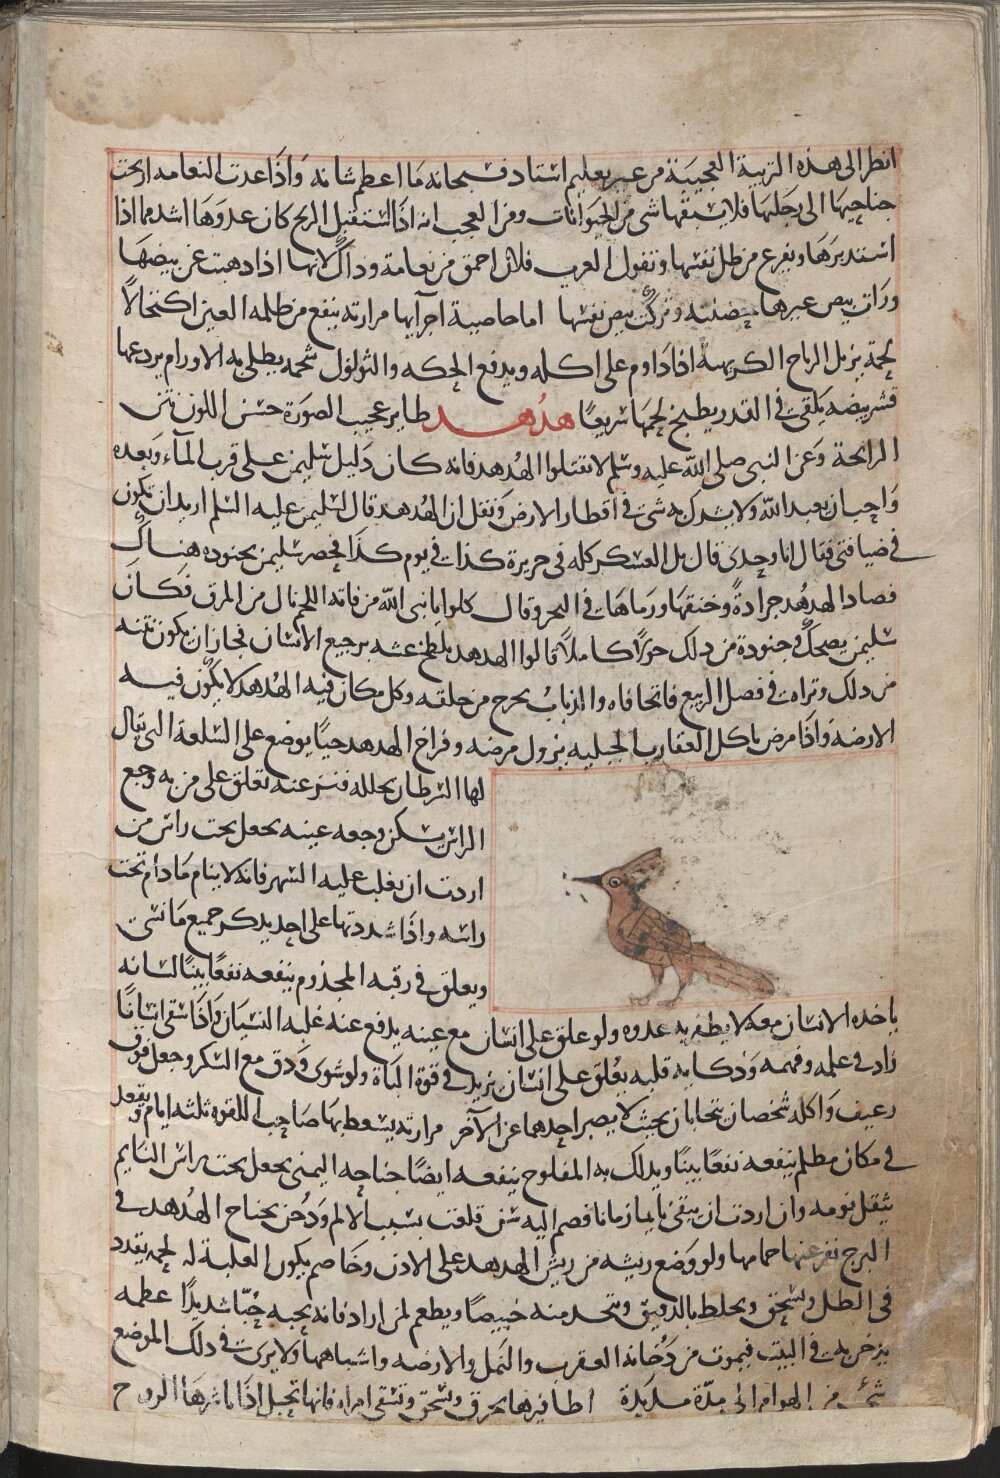 انظر الى هذه التربية العجيبة من غير تعليم استاد فسبحانه ما اعظم شانه واذا عدت النعامه ارخت
جناحيها الى رجليها فلا يسبقها شي من الحيوانات ومن العجب انه اذا استقبل الريح كان عدوها اشد مما اذا
استدبرها ويفزع من ظل نفسها وتقول العرب فلان احمق من نعامة وذاك لانها اذا ذهبت عن بيضها
ورات بيض غيرها حضنته وتركت بيض نفسها اما خاصية اجزآيها مرارته ينفع من ظلمه العين اكتحالاً
لحمه يزيل الرياح الكريهه اذا داوم على اكله ويدفع الحكه والثولول شحمه يطلى به الاورام يردعها
قشر بيضه يلقى في القدر يطبخ لحمها سريعًا هدهد طاير عجيب الصورة حسن اللون نتن
الرايحة وعن النبي صلى الله عليه وسلم لا تقتلوا الهدهد فانه كان دليل سليمن على قرب المآء وبعده
واحب ان يعبد الله ولا يشرك به شي في اقطار الارض ونقل ان الهدهد قال لسليمن عليه السلم اريد ان تكون
في ضيافتي فقال انا وحدى قال بل العسكر كله في جزيرة كذا في يوم كذا فحضر سليمن بجنوده هناك
فصاد الهدهد جرادةً وخنقها ورماها في البحر وقال كلوا يا نبى الله من فاته اللحم نال من المرق فكان
سليمن يضحك وجنوده من ذلك حولاً كاملاً قالوا الهدهد يلطخ عشه برجيع الانسان فجاز ان يكون نتنه
من ذلك وتراه في فصل الربيع فاتحا فاه والذباب يخرج من حلقه وكل مكان فيه الهدهد لا يكون فيه
الارضه واذا مرض ياكل العقارب الجبليه يزول مرضه وفراخ الهدهد حيًا يوضع على السلعة التي يقال
لها السرطان يحلله قنزعته تعلق على من به وجع
الراس يسكن وجعه عينه يجعل تحت راس من
اردت ان يغلب عليه السهر فانه لا ينام ما دام تحت
راسه واذا شددتها على احد يذكر جميع ما نسى
ويعلق في رقبه المجذوم ينفعه نفعًا بينًا لسانه
ياخذه الانسان معه لا يظفر به عدوه ولو علق على انسان مع عينه يدفع عنه غلبه النسيان واذا سقى انسانًا
زاد في علمه وفهمه وذكايه قلبه يعلق على انسان يزيد في قوة الباة ولو شوى ودق مع السكر وجعل فوق
رغيف واكله شخصان تتحابان بحيث لا يصبر احدهما عن الآخر مرارته يسعط بها صاحب اللقوه ثلثه ايام ويقعد
في مكان مظلم ينفعه نفعًا بينًا ويدلك به المفلوج ينفعه ايضًا جناحه اليمنى يجعل تحت راس النايم
يثقل نومه وان اردت ان يبقى نايما زمانا فضم اليه سن قلعت بسبب الالم ودخن بجناح الهدهد في
البرج نفر عنها حمامها ولو وضع ريشه من ريش الهدهد على الاذن وخاصم يكون الغلبة له لحمه يقدد
في الظل ويسحق ويخلط بالدقيق ويتخذ منه خبيصًا ويطعم لمن اراد فانه يحبه حُبّا شديدًا عظمه
يدخن به في البيت فيموت من دخانه العقرب والنمل والارضه واشباهها ولا يرى في ذلك الموضع
شئ من الهوام الى مدّة مديدة اظافيرها يحرق ويسحق وتسقى امراه فانها تحبل اذا باشرها الزوج